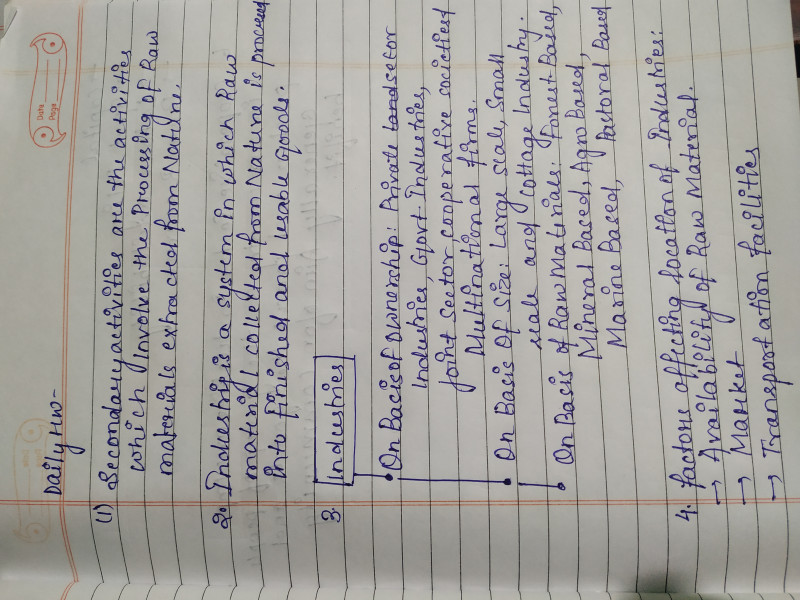 Date
Page
Daily HW-
(1) Secondary activities are the activities
which Involve the Processing of Raw
materials extracted from Nature.
2. Industries is a system in which Raw
material collected from Nature is proceed
into finished and usable Goods.
3. Industries
On Basis of Ownership: Private sector
Industries, Govt Industries,
Joint Sector, cooperative societies
Multinational firms.
On Basis Of Size: Large scale, Small
scale and cottage Industry.
On Basis of Raw Materials: Forest Based,
Mineral Based, Agro Based,
Marine Based, Pastoral Based
4. factors affecting location of Industries:
→ Availability of Raw Material.
→ Market
→ Transportation facilities